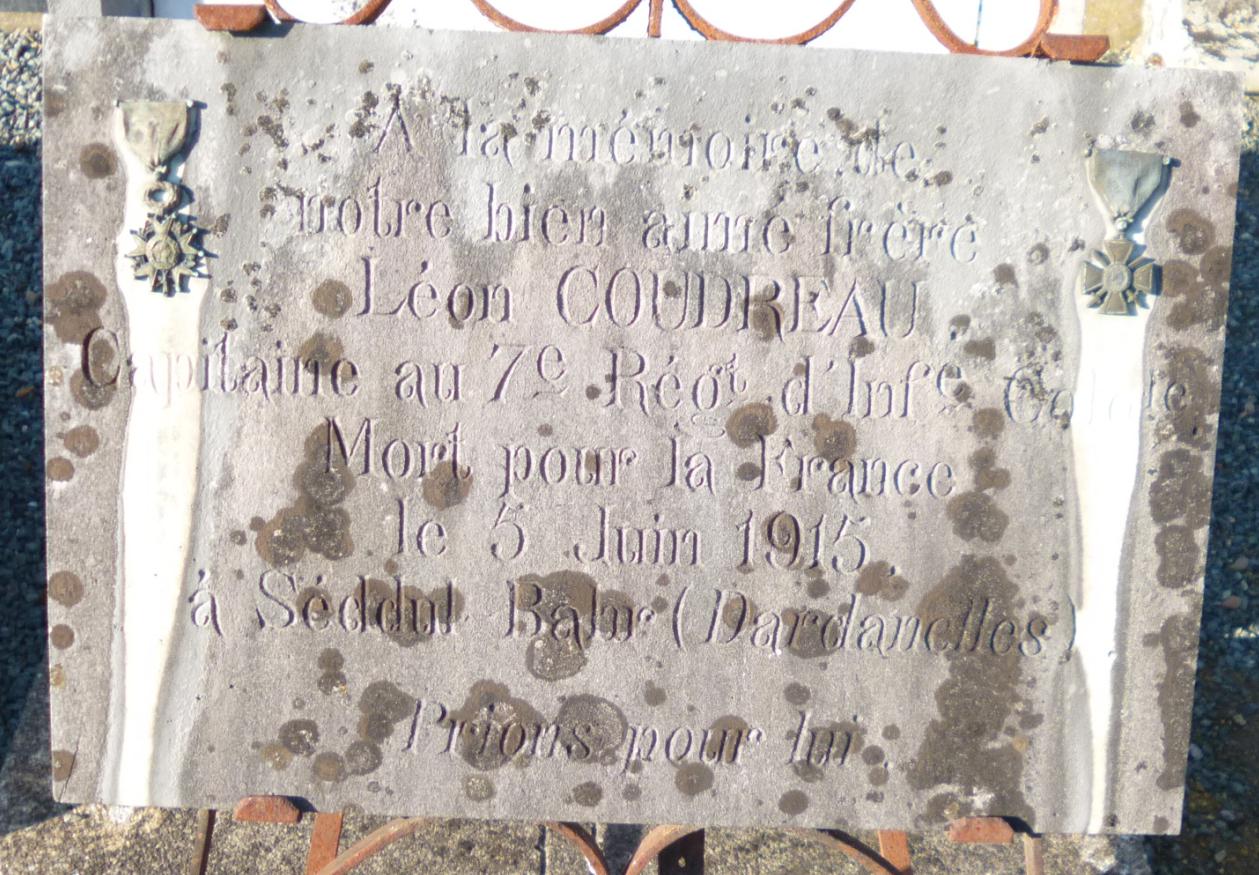 A la mémoire de
notre bien aimé frère
Léon COUDREAU
Capitaine au 7e Régt d'Infe Colale
Mort pour la France
le 5 Juin 1915
à Séddul Bahr (Dardanelles)
Prions pour lui